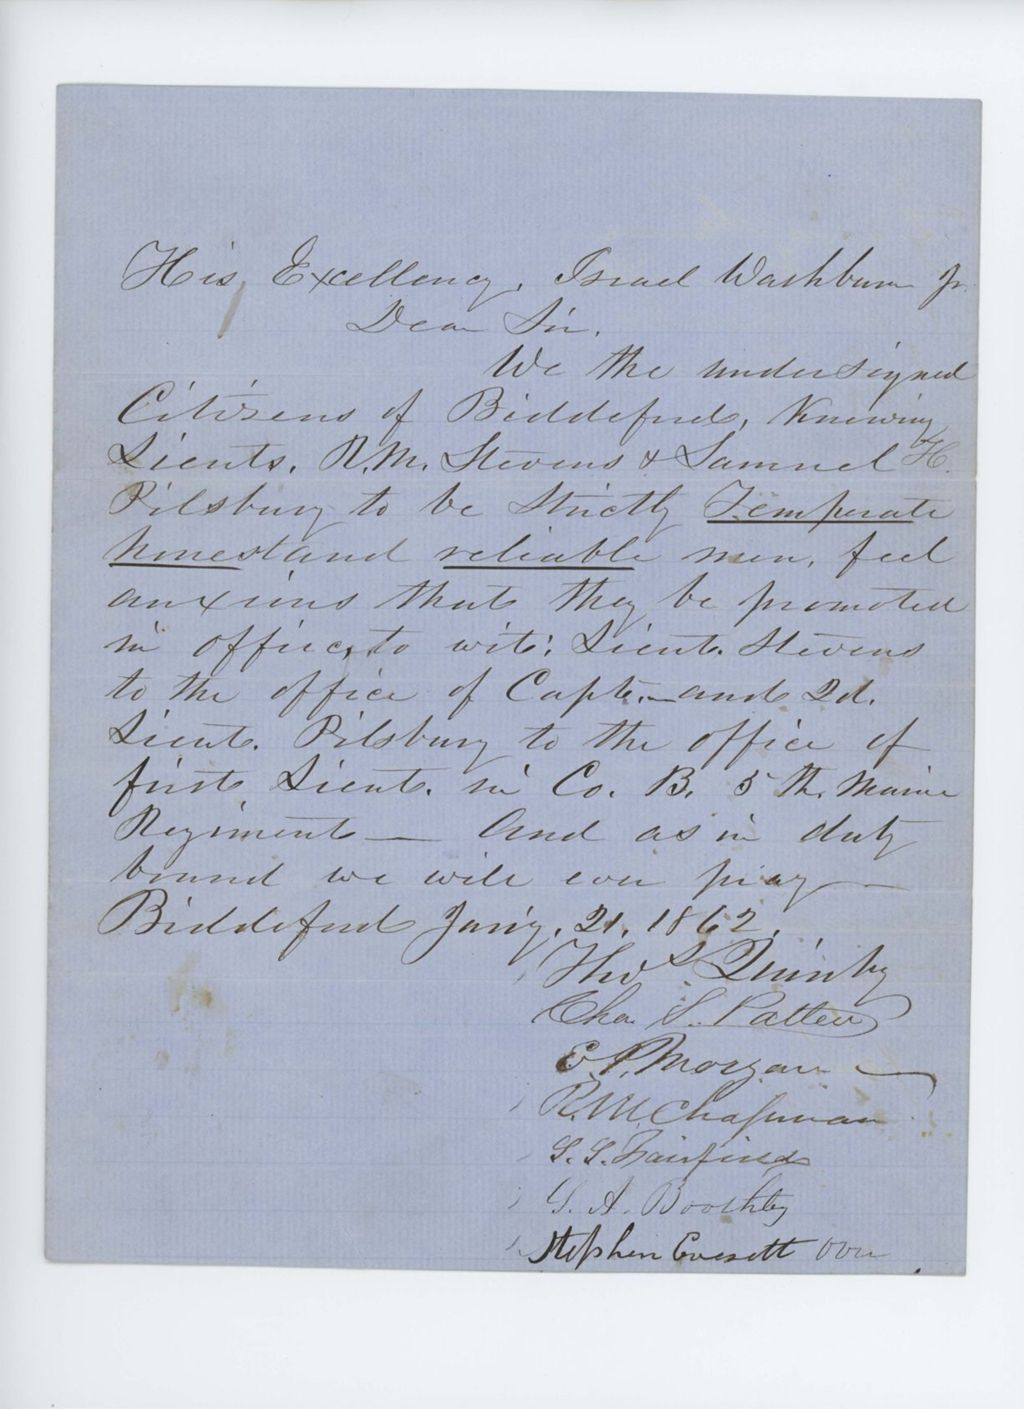 His, Excellency, Israel Washburn Jr.
Dear Sir,
We the undersigned
Citizens of Biddeford, Knowing
Lieuts. R.M. Stevens & Samuel H.
Pilsbury to be Strictly Temperate
honest and reliable men, feel
anxious that they be promoted
in office, to wit; Lieut. Stevens
to the office of Capt. – and 2d.
Lieut. Pilsbury to the office of
first Lieut. in Co. B. 5th. Maine
Regiment — And as in duty
bound we will ever pray —
Biddeford Jan'y. 21. 1862.
Thos Quinby
Chas. S. Patten
E. P. Morgan
R. M. Chapman
S. S. Fairfield
G. A. Boothby
Stephen Everett over